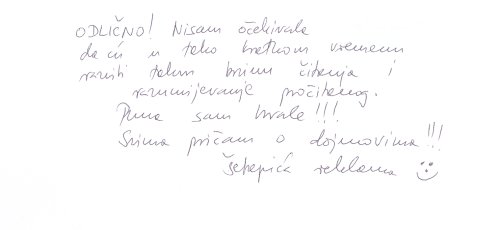 ODLIČNO! Nisam očekivala
da ću u tako kratkom vremenu
razviti takvu brzinu čitanja i
razumijevanje pročitanog.
Puna sam hvale!!!
Svima pričam o dojmovima!!!
Šetajuća reklama